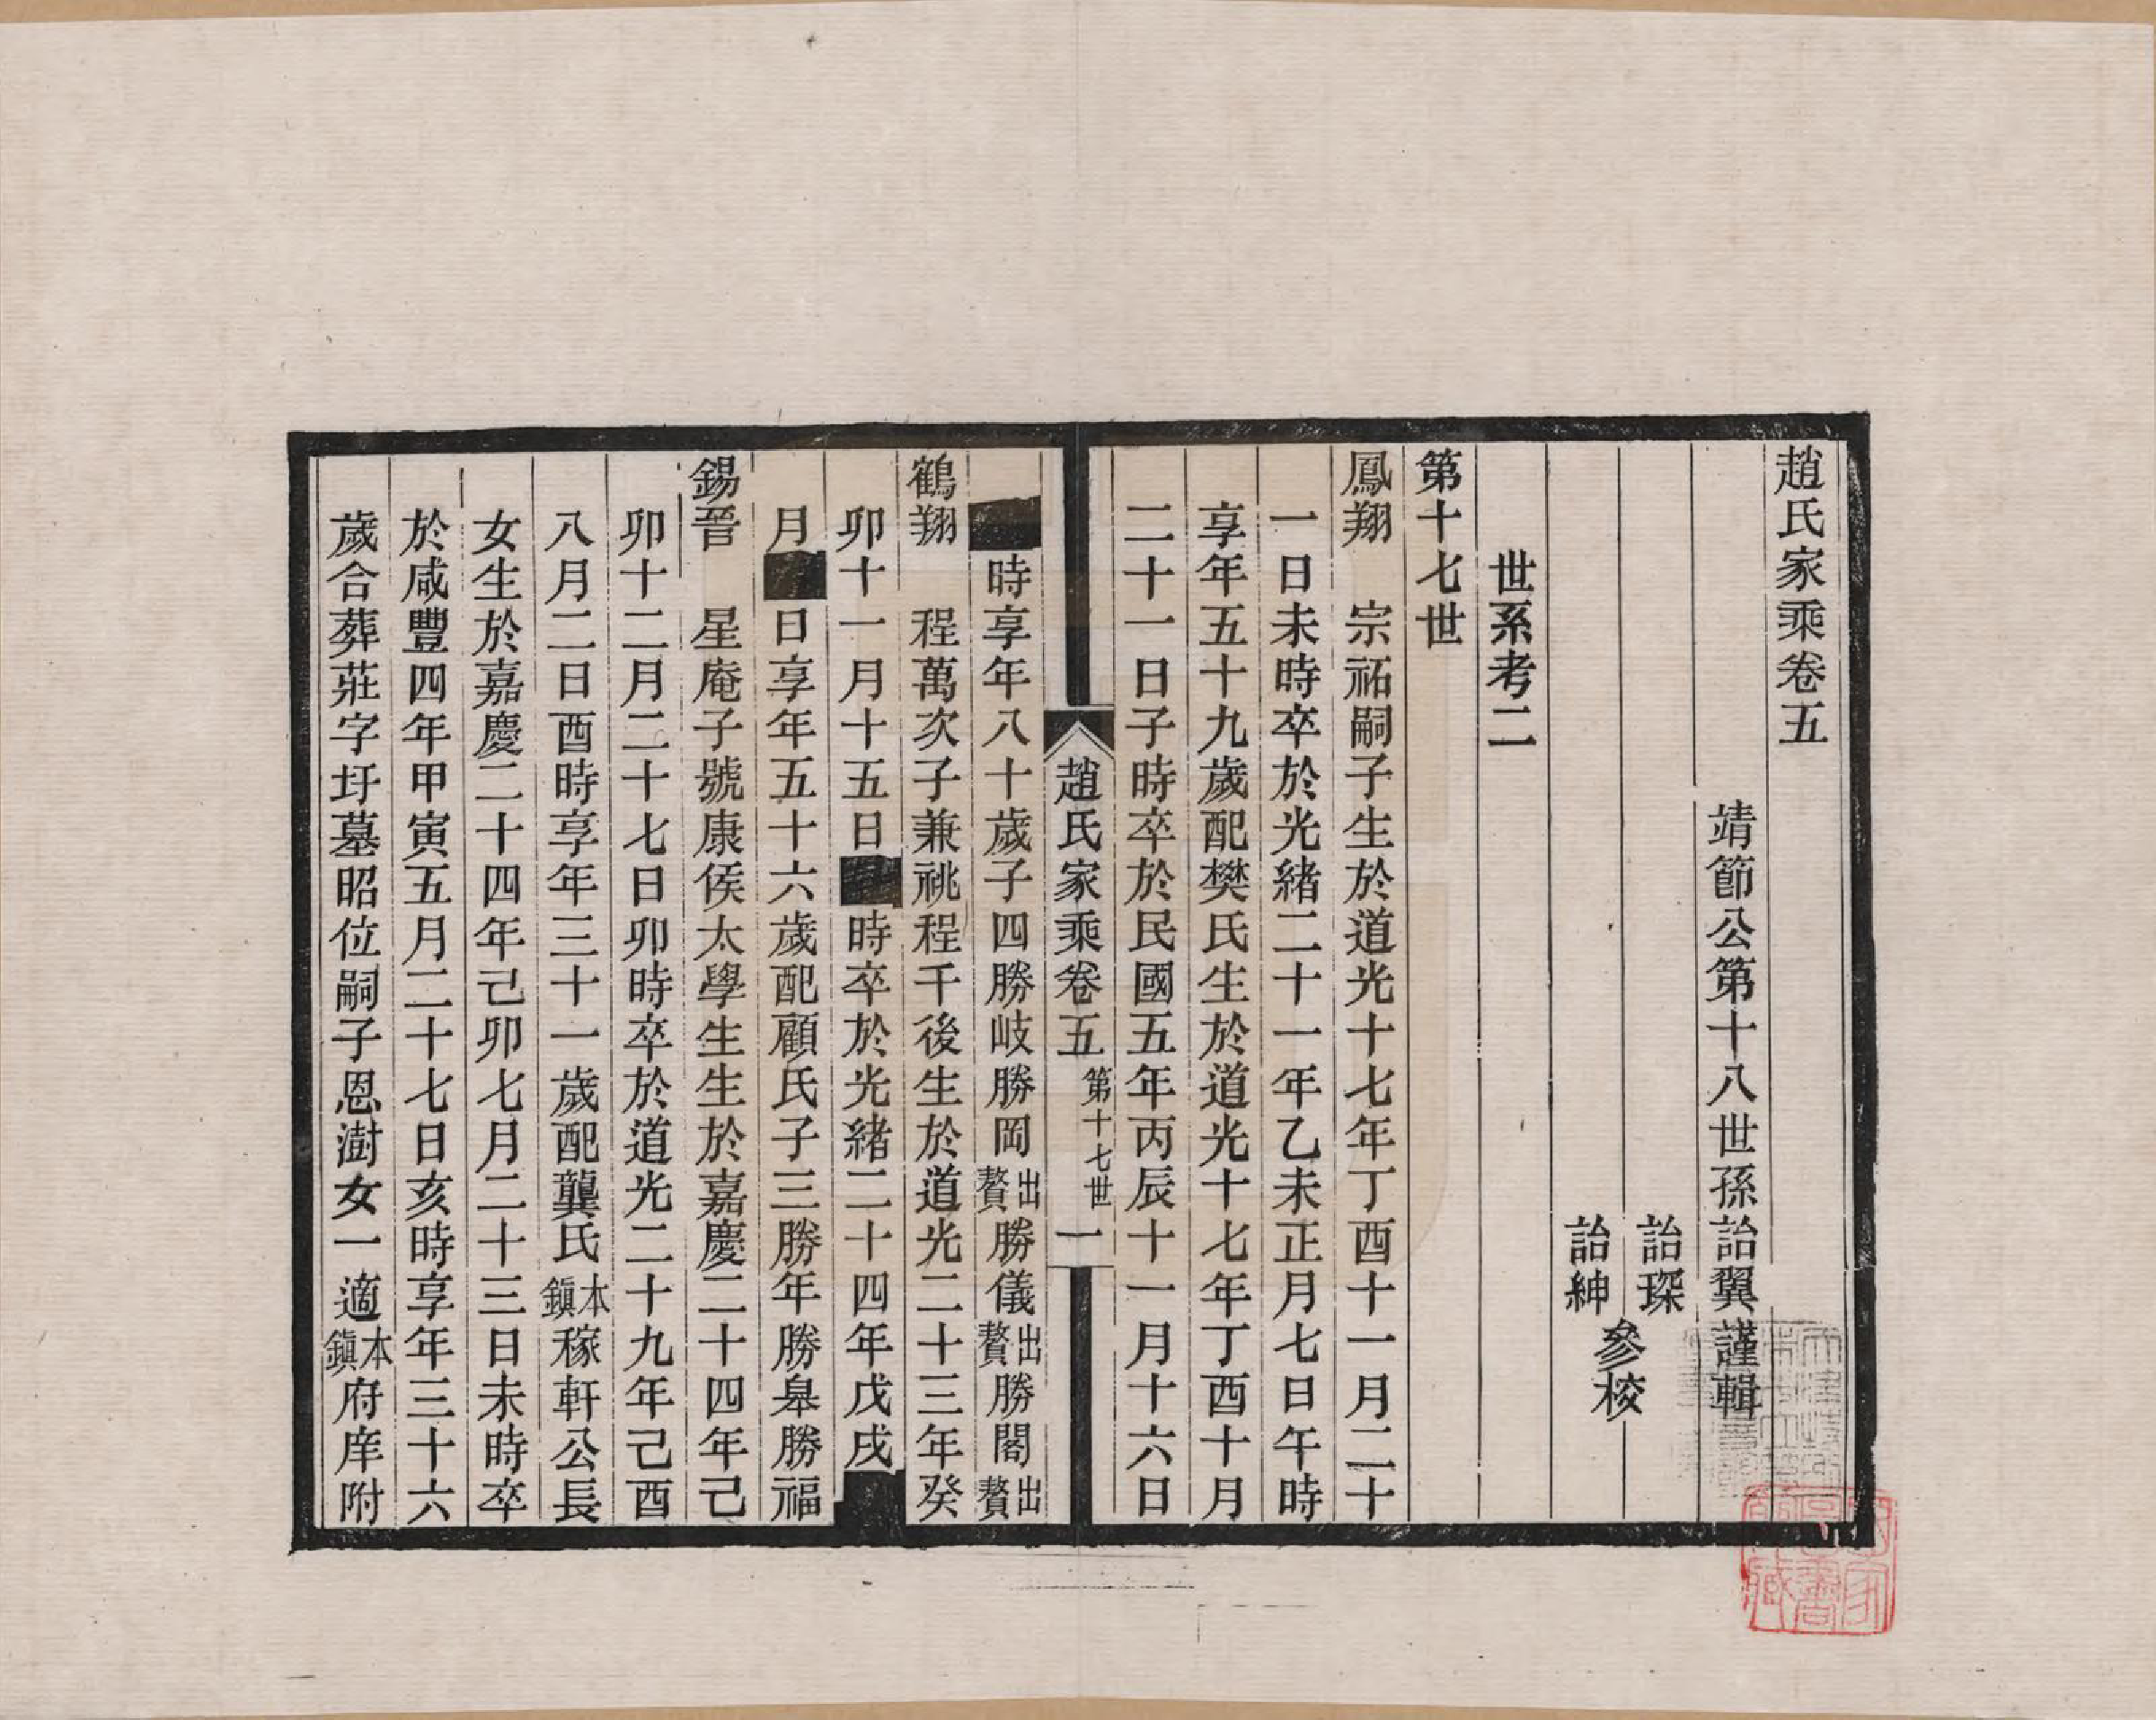 趙氏家乘卷五
靖節公第十八世孫詒翼謹輯
詒琛
詒紳
參校
世系考二
第十七世
鳳翔　宗祏嗣子生於道光十七年丁酉十一月二十
一日未時卒於光緒二十一年乙未正月七日午時
享年五十九歲配樊氏生於道光十七年丁酉十月
二十一日子時卒於民國五年丙辰十一月十六日
趙氏家乘卷五　第十七世　一
■時享年八十歲子四勝岐勝岡出贅勝儀出贅勝閣出贅
鶴翔　程萬次子兼祧程千後生於道光二十三年癸
卯十一月十五日■時卒於光緒二十四年戊戌■
月■日享年五十六歲配顧氏子三勝年勝皋勝福
錫晉　星庵子號康侯太學生生於嘉慶二十四年己
卯十二月二十七日卯時卒於道光二十九年己酉
八月二日酉時享年三十一歲配龔氏本鎭稼軒公長
女生於嘉慶二十四年己卯七月二十三日未時卒
於咸豐四年甲寅五月二十七日亥時享年三十六
歲合葬莊字圩墓昭位嗣子恩澍女一適本鎭府庠附